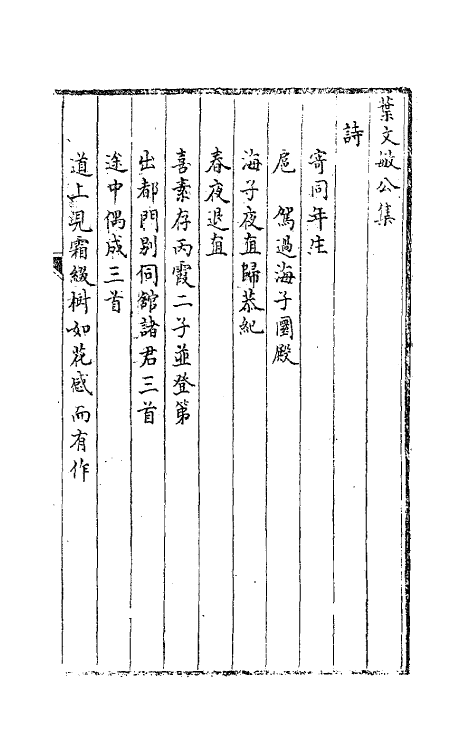 葉文敏公集
詩
寄同年生
扈 駕過海子圍殿
海子夜直歸恭紀
春夜退直
喜素存丙霞二子並登第
出都門别同館諸君三首
途中偶成三首
道上見霜綴樹如花感而有作